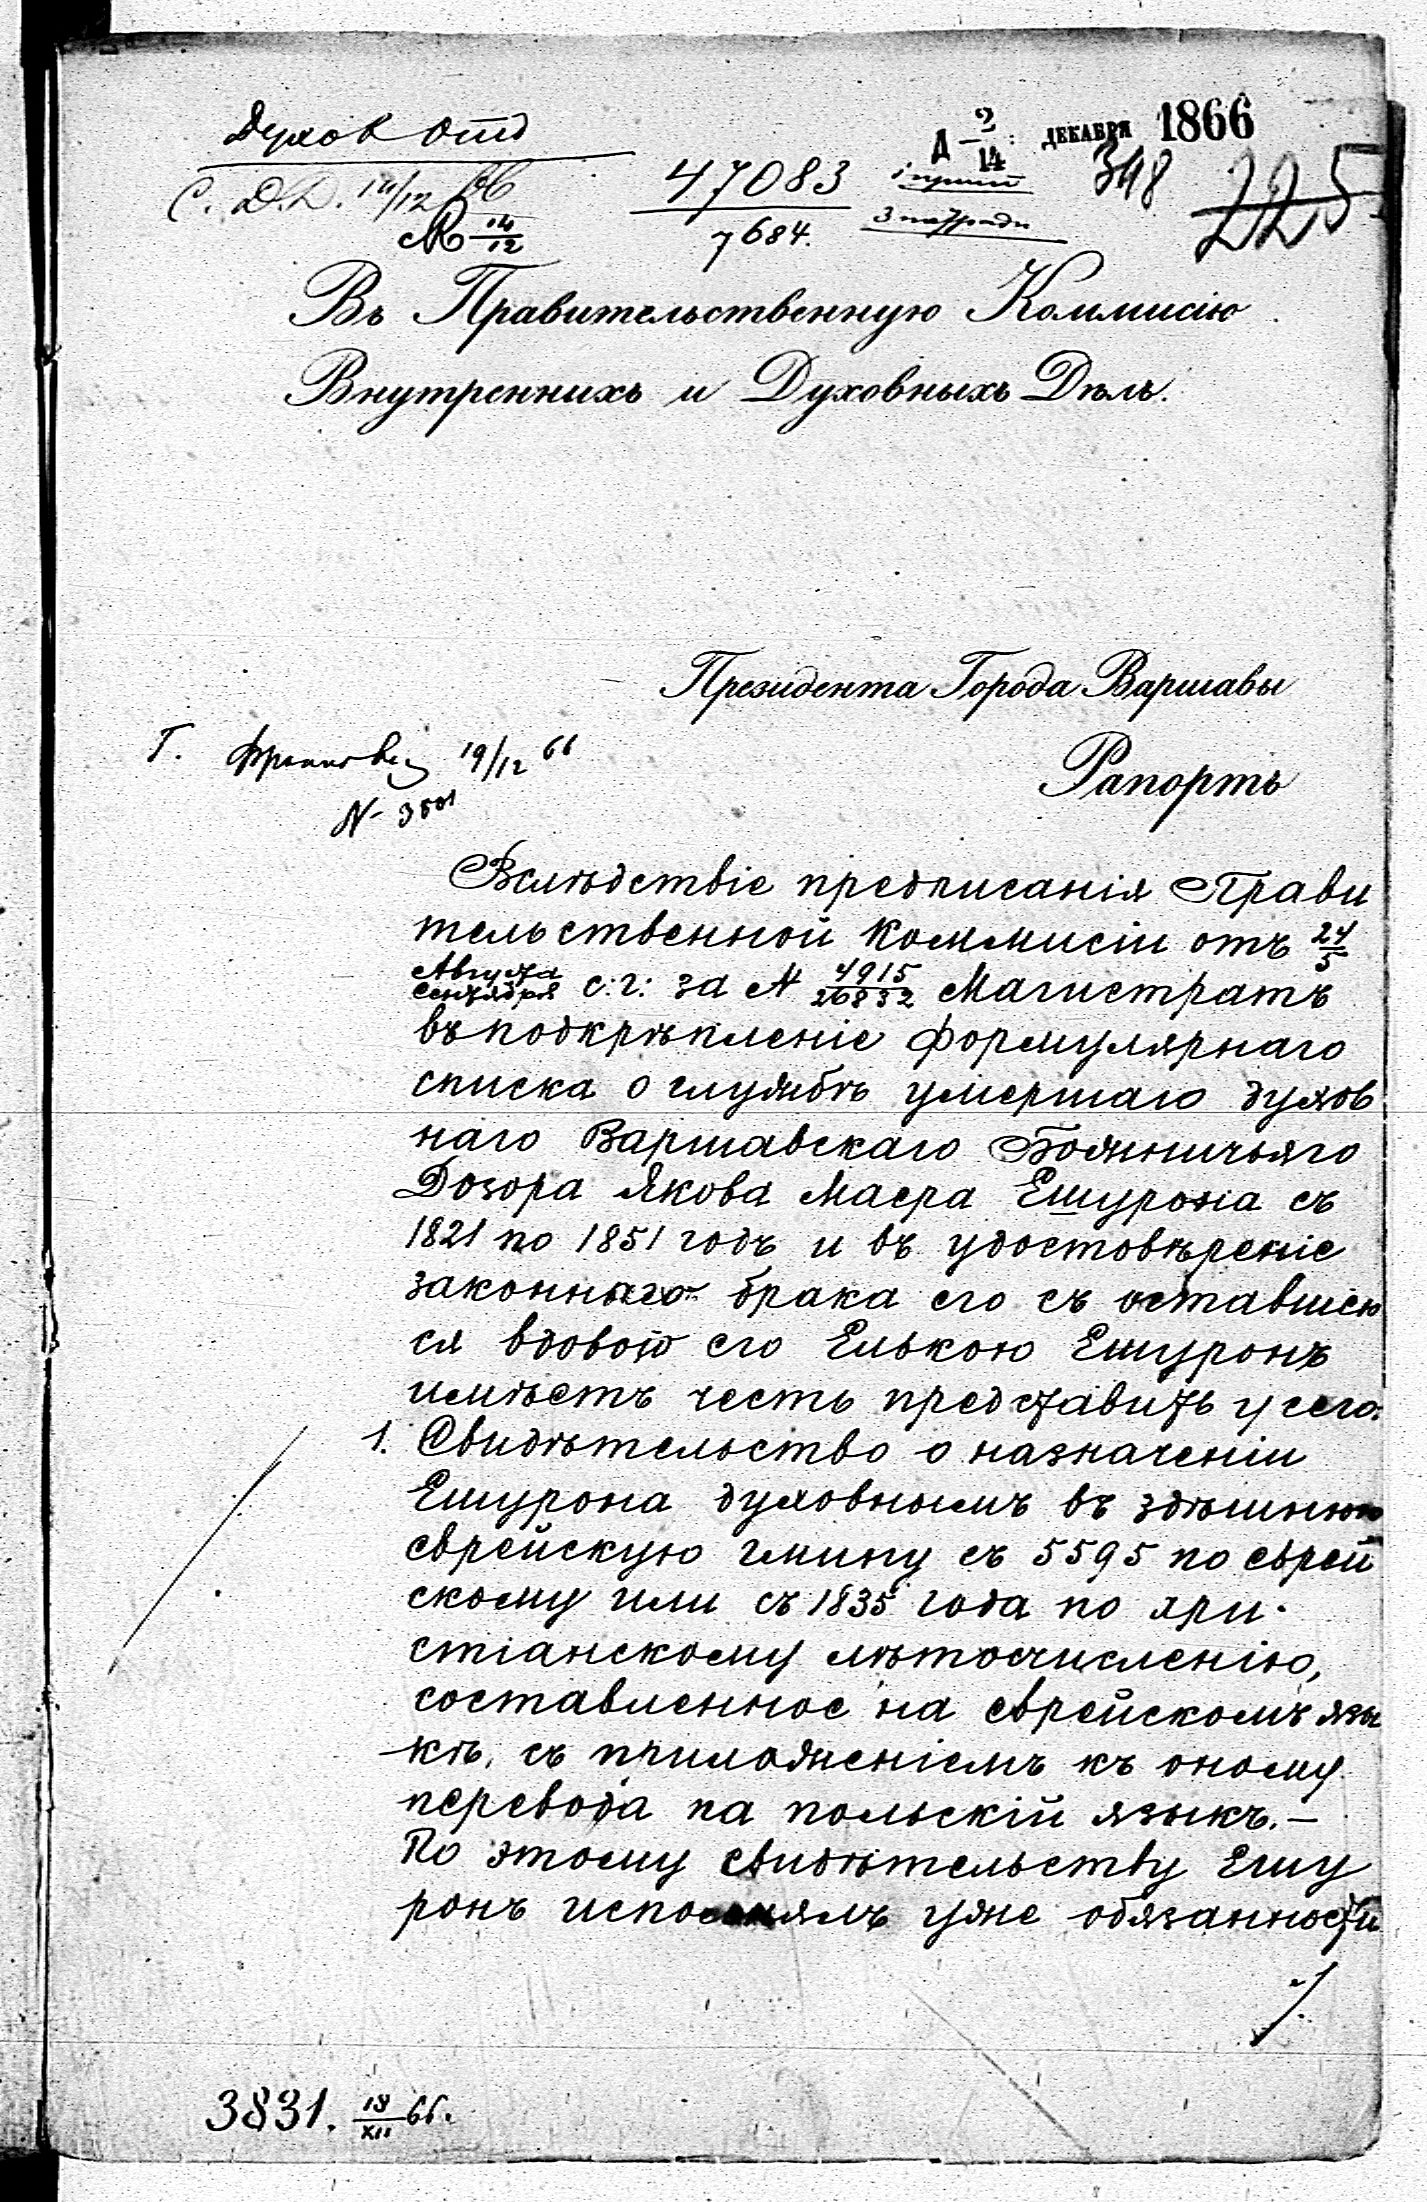 Духов Отд
Д 2/14 ДЕКАБРЯ 1866
С. Д.D. 14/12 66
47083
7684.
348
225
14/12
Въ Правительственную Коммисію
Внутреннихъ и Духовныхъ Дѣлъ.
Президента Города Варшавы
Г. 19/12 66
Рапортъ
Вслѣдствіе предписанія Прави
тельственной Коммисіи отъ 24/5
Августа/Сентября с: г: за N 4915/26832 Магистратъ
въ подкрѣпленіе формулярнаго
списка о службѣ умершаго духов
наго Варшавскаго Божничьяго
Дозора Якова Маера Ешурона съ
1821 по 1851 годъ и въ удостовѣреніе
законнаго брака его съ оставшею
ся вдовою его Елькою Ешуронъ
имѣетъ честь представить у сего:
1. Свидѣтельство о назначеніи
Ешурона духовнымъ въ здѣшнюю
еврейскую гмину съ 5595 по еврей
скому или съ 1835 года по хри-
стіанскому лѣтосчисленію,
составленное на еврейскомъ язы
кѣ, съ приложеніемъ къ оному
перевода на польскій языкъ.—
По этому свидѣтельству Ешу
ронъ исполнялъ уже обязанности
./.
3831. 19/XII 66.